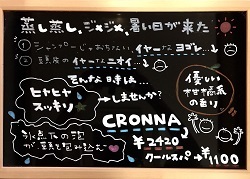 蒸し蒸し、ジメジメ、暑い日が来た
① シャンプーじゃおちない、イヤ〜なヨゴレ…
② 頭皮のイヤ〜なニオイ…
そんな日本は…
ヒヤヒヤ
スッキリ
しませんか?
優しい
柑橘系
の香り
CRONNA
¥2420
氷点下の泡
が頭を包み込む
クールスパ +¥1100